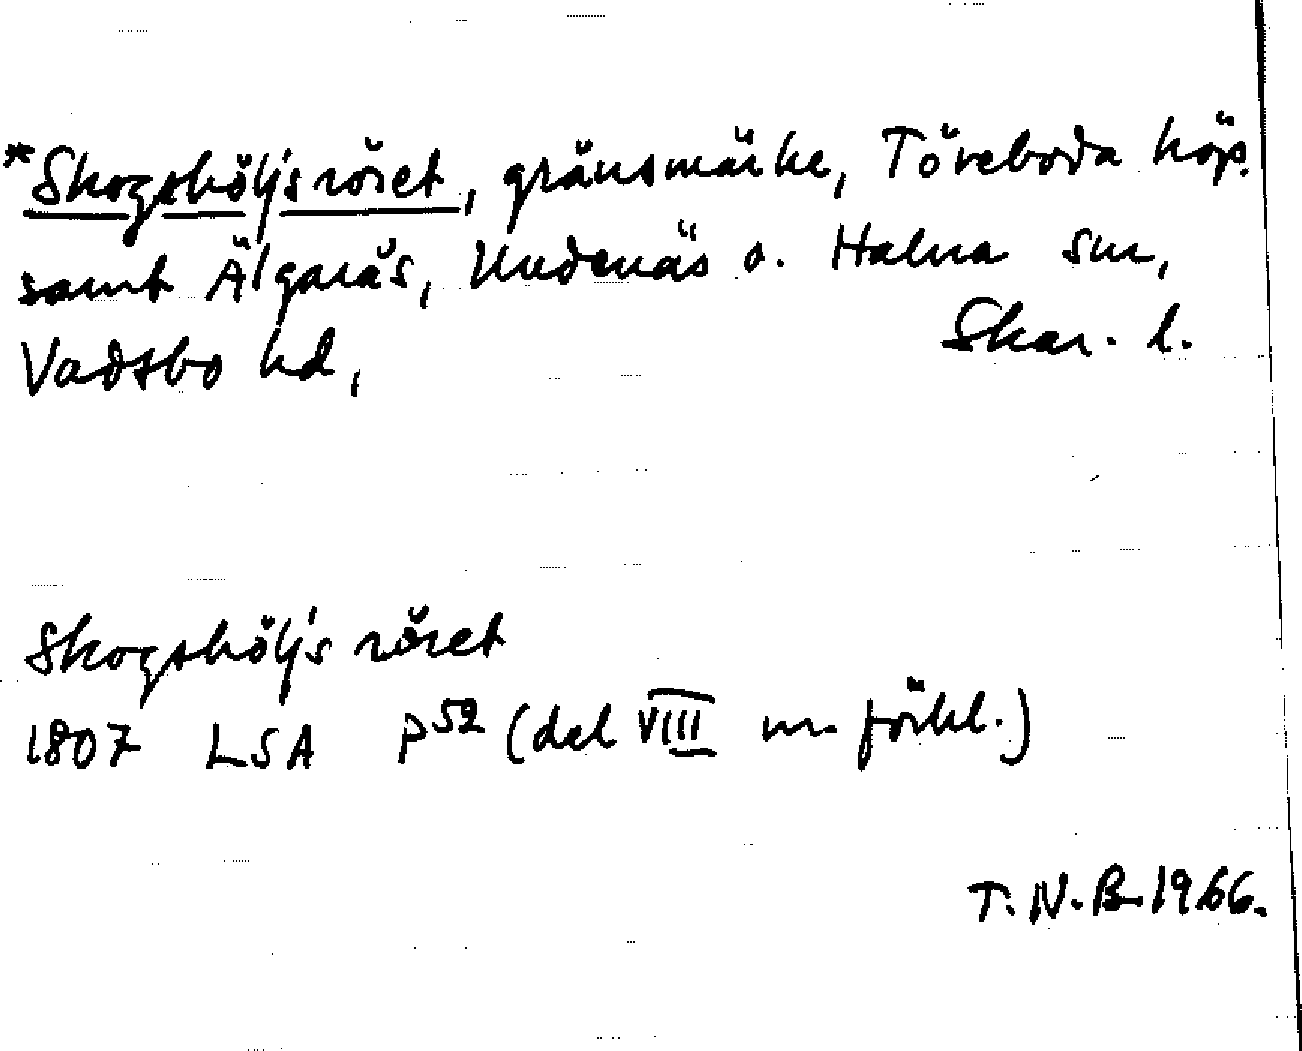 *Skogsböljsröset, gränsmärke, Töreboda köp.
samt Älgarås, Undenäs o. Halna snr,
Vadsbo hd, Skar. l.
Skogsböljs röset
1807 LSA P52 (del VIII nr förkl.)
T. N. B. 1966.